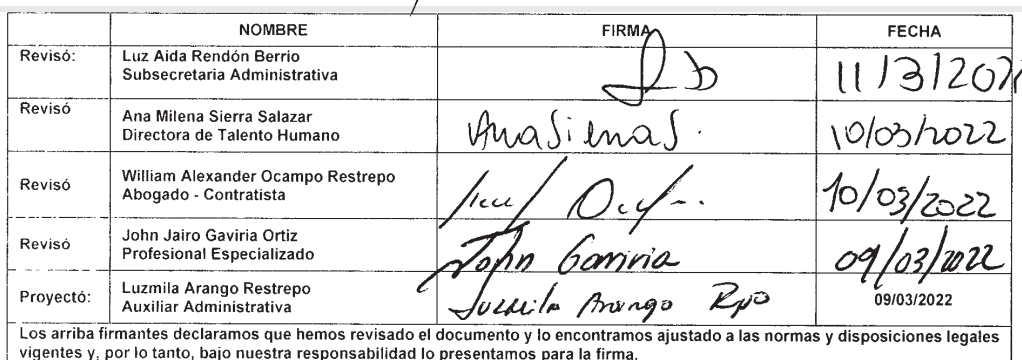 NOMBRE FIRMA FECHA
Revisó: Luz Aida Rendón Berrio
Subsecretaria Administrativa 11/3/202
Revisó Ana Milena Sierra Salazar
Directora de Talento Humano AnaSierraS. 10/03/2022
Revisó William Alexander Ocampo Restrepo
Abogado - Contratista 10/03/2022
Revisó John Jairo Gaviria Ortiz
Profesional Especializado John Gaviria 09/03/2022
Proyectó: Luzmila Arango Restrepo
Auxiliar Administrativa Luzmila Arango Rpo 09/03/2022
Los arriba firmantes declaramos que hemos revisado el documento y lo encontramos ajustado a las normas y disposiciones legales
vigentes y, por lo tanto, bajo nuestra responsabilidad lo presentamos para la firma.